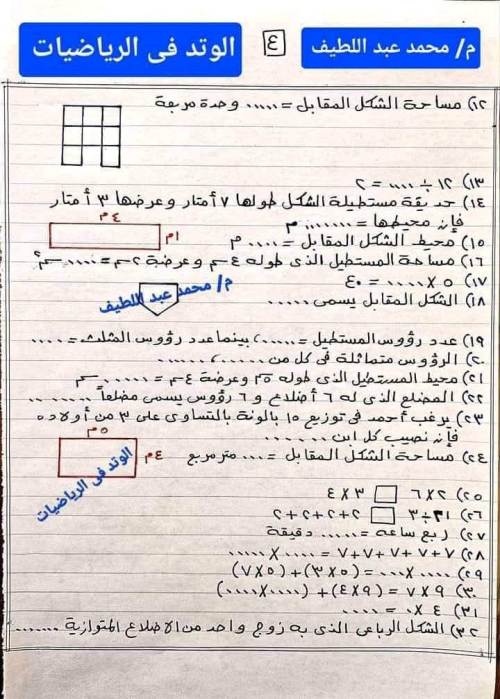 م/ محمد عبد اللطيف ٤ الوتد فى الرياضيات
١٢) مساحة الشكل المقابل = ..... وحدة مربعة
١٣) ١٢ ÷ .... = ٢
١٤) حديقة مستطيلة الشكل طولها ٧ أمتار وعرضها ٣ أمتار
فإن محيطها = ........ م
٤م
١٥) محيط الشكل المقابل = .... م
١م
١٦) مساحة المستطيل الذى طوله ٤سم وعرضة ٢سم = ..... سم٢
١٧) ٥ × .... = ٤٠
م/ محمد عبد اللطيف
١٨) الشكل المقابل يسمى .....
١٩) عدد رؤوس المستطيل = ..... ، بينما عدد رؤوس المثلث = ....
٢٠) الرؤوس متماثلة فى كل من ...... ، ......
٢١) محيط المستطيل الذى طوله ٥سم وعرضة ٤سم = ...... سم
٢٢) المضلع الذى له ٦ أضلاع و ٦ رؤوس يسمى مضلعاً ........
٢٣) يرغب أحمد فى توزيع ١٥ بالونة بالتساوى على ٣ من أولاده
فإن نصيب كل ابن ......
٥م
٢٤) مساحة الشكل المقابل = .... متر مربع
٤م
الوتد فى الرياضيات
٢٥) ٢ × ٦ □ ٣ × ٤
٢٦) ٢١ ÷ ٣ □ ٢+٢+٢+٢
٢٧) ربع ساعة = ...... دقيقة
٢٨) ٧+٧+٧+٧+٧ = .... × .....
٢٩) .... × .... = (٥×٣) + (٥×٧)
٣٠) ٩ × ٧ = (٩×٤) + (.... × ....)
٣١) ٤ × ٠ = ....
٣٢) الشكل الرباعى الذى به زوج واحد من الاضلاع المتوازية ........